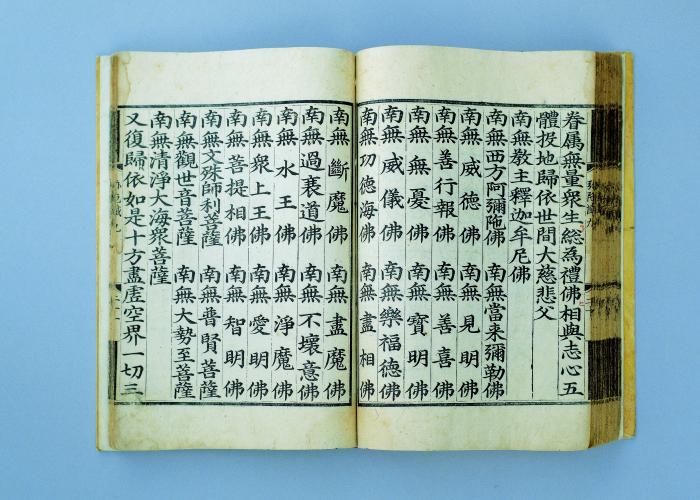 眷屬無量衆生総為禮佛相與志心五
體投地歸依世間大慈悲父
南無教主釋迦牟尼佛
南無西方阿彌陁佛 南無當来彌勒佛
南無威德佛 南無見明佛
南無善行報佛 南無善喜佛
南無無憂佛 南無寳明佛
南無威儀佛 南無樂福德佛
南無功德海佛 南無盡相佛
南無斷魔佛 南無盡魔佛
南無過衰道佛 南無不壞意佛
南無水王佛 南無淨魔佛
南無衆上王佛 南無愛明佛
南無菩提相佛 南無智明佛
南無文殊師利菩薩 南無普賢菩薩
南無觀世音菩薩 南無大勢至菩薩
南無清淨大海衆菩薩
又復歸依如是十方盡虛空界一切三